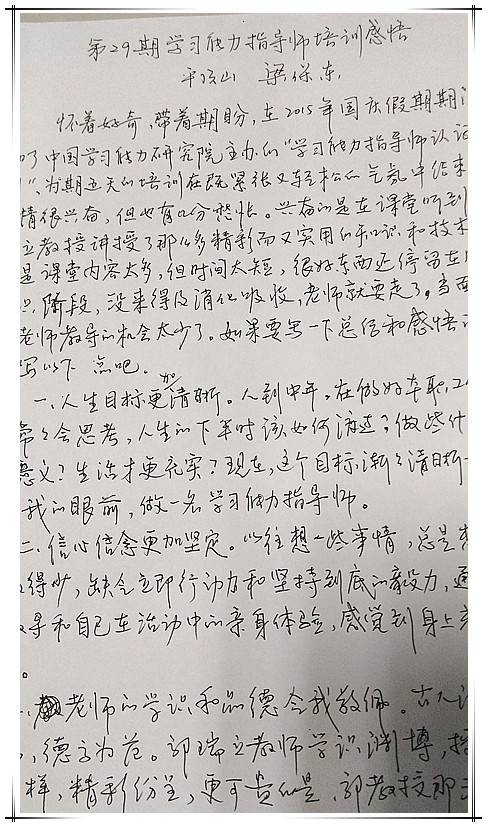 第29期学习能力指导师培训感悟
平顶山 梁保东
怀着好奇、带着期盼,在2015年国庆假期期
了中国学习能力研究院主办的“学习能力指导师认证
”、为期五天的培训在既紧张又轻松的气氛中结束
情很兴奋,但也有几分惆怅。兴奋的是在课堂听到
立教授讲授了那么多精彩而又实用的知识和技术
是课堂内容太多,但时间太短,很好东西还停留在
阶段,没来得及消化吸收,老师就要走了。当面
老师教导的机会太少了。如果要写一下总结和感悟
写以下 点吧。
一、人生目标更加清晰。人到中年,在做好本职工
常常会思考,人生的下半时该如何渡过?做些什
意义?生活才更充实?现在,这个目标渐渐清晰
我的眼前,做一名学习能力指导师。
二、信心信念更加坚定。以往想一些事情,总是
得少,缺乏立即行动力和坚持到底的毅力,通
和自己在活动中的亲身体验,感觉到身上
。
老师的学识和品德令我敬佩。古人
,德方为范。郭瑞立教师学识渊博,
样,精彩纷呈,更可贵的是,郭教授那